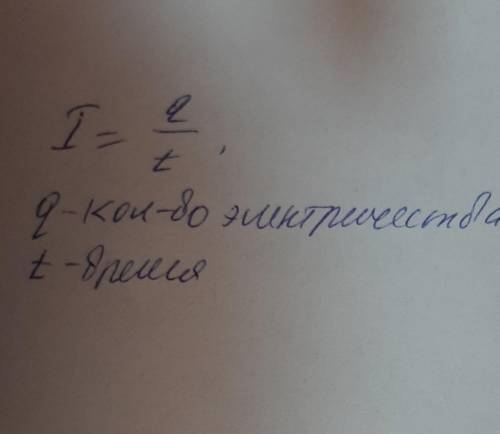 I = q/t,
q - кол-во электричества
t - время